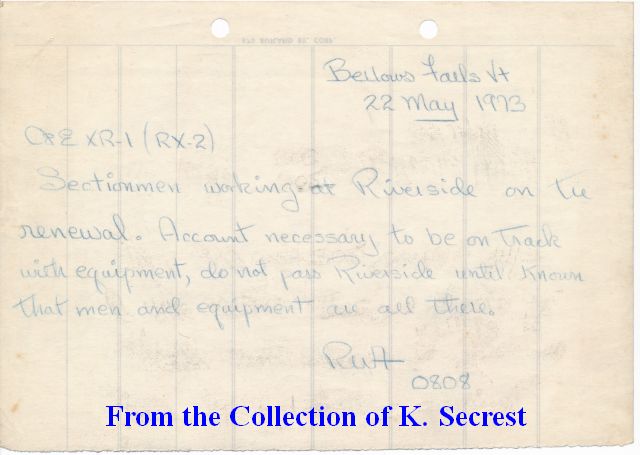 Bellows Falls Vt
22 May 1973
C&E XR-1 (RX-2)
Sectionmen working at Riverside on tie
renewal. Account necessary to be on track
with equipment, do not pass Riverside until known
that men and equipment are all there.
RWA
0808
From the Collection of K. Secrest